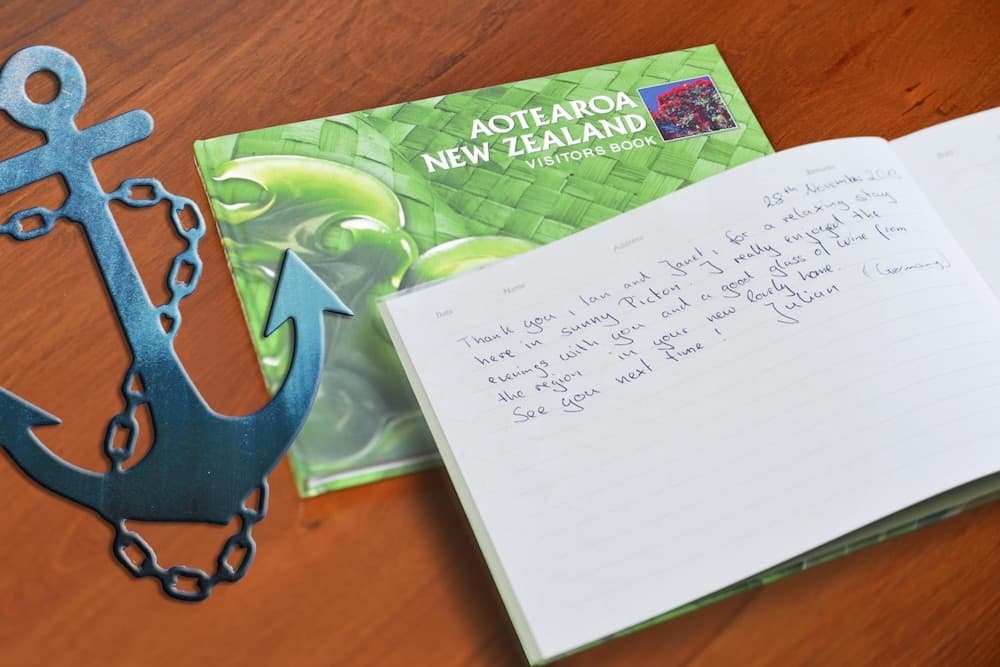 AOTEAROA
NEW ZEALAND
VISITORS BOOK
Date
Name
Address
Remarks
Date
28th November 201
Thank you, Ian and Janet, for a relaxing stay
here in sunny Picton. I really enjoyed the
evenings with you and a good glass of wine from
the region in your new lovely home.
See you next time! Julian (Germany)